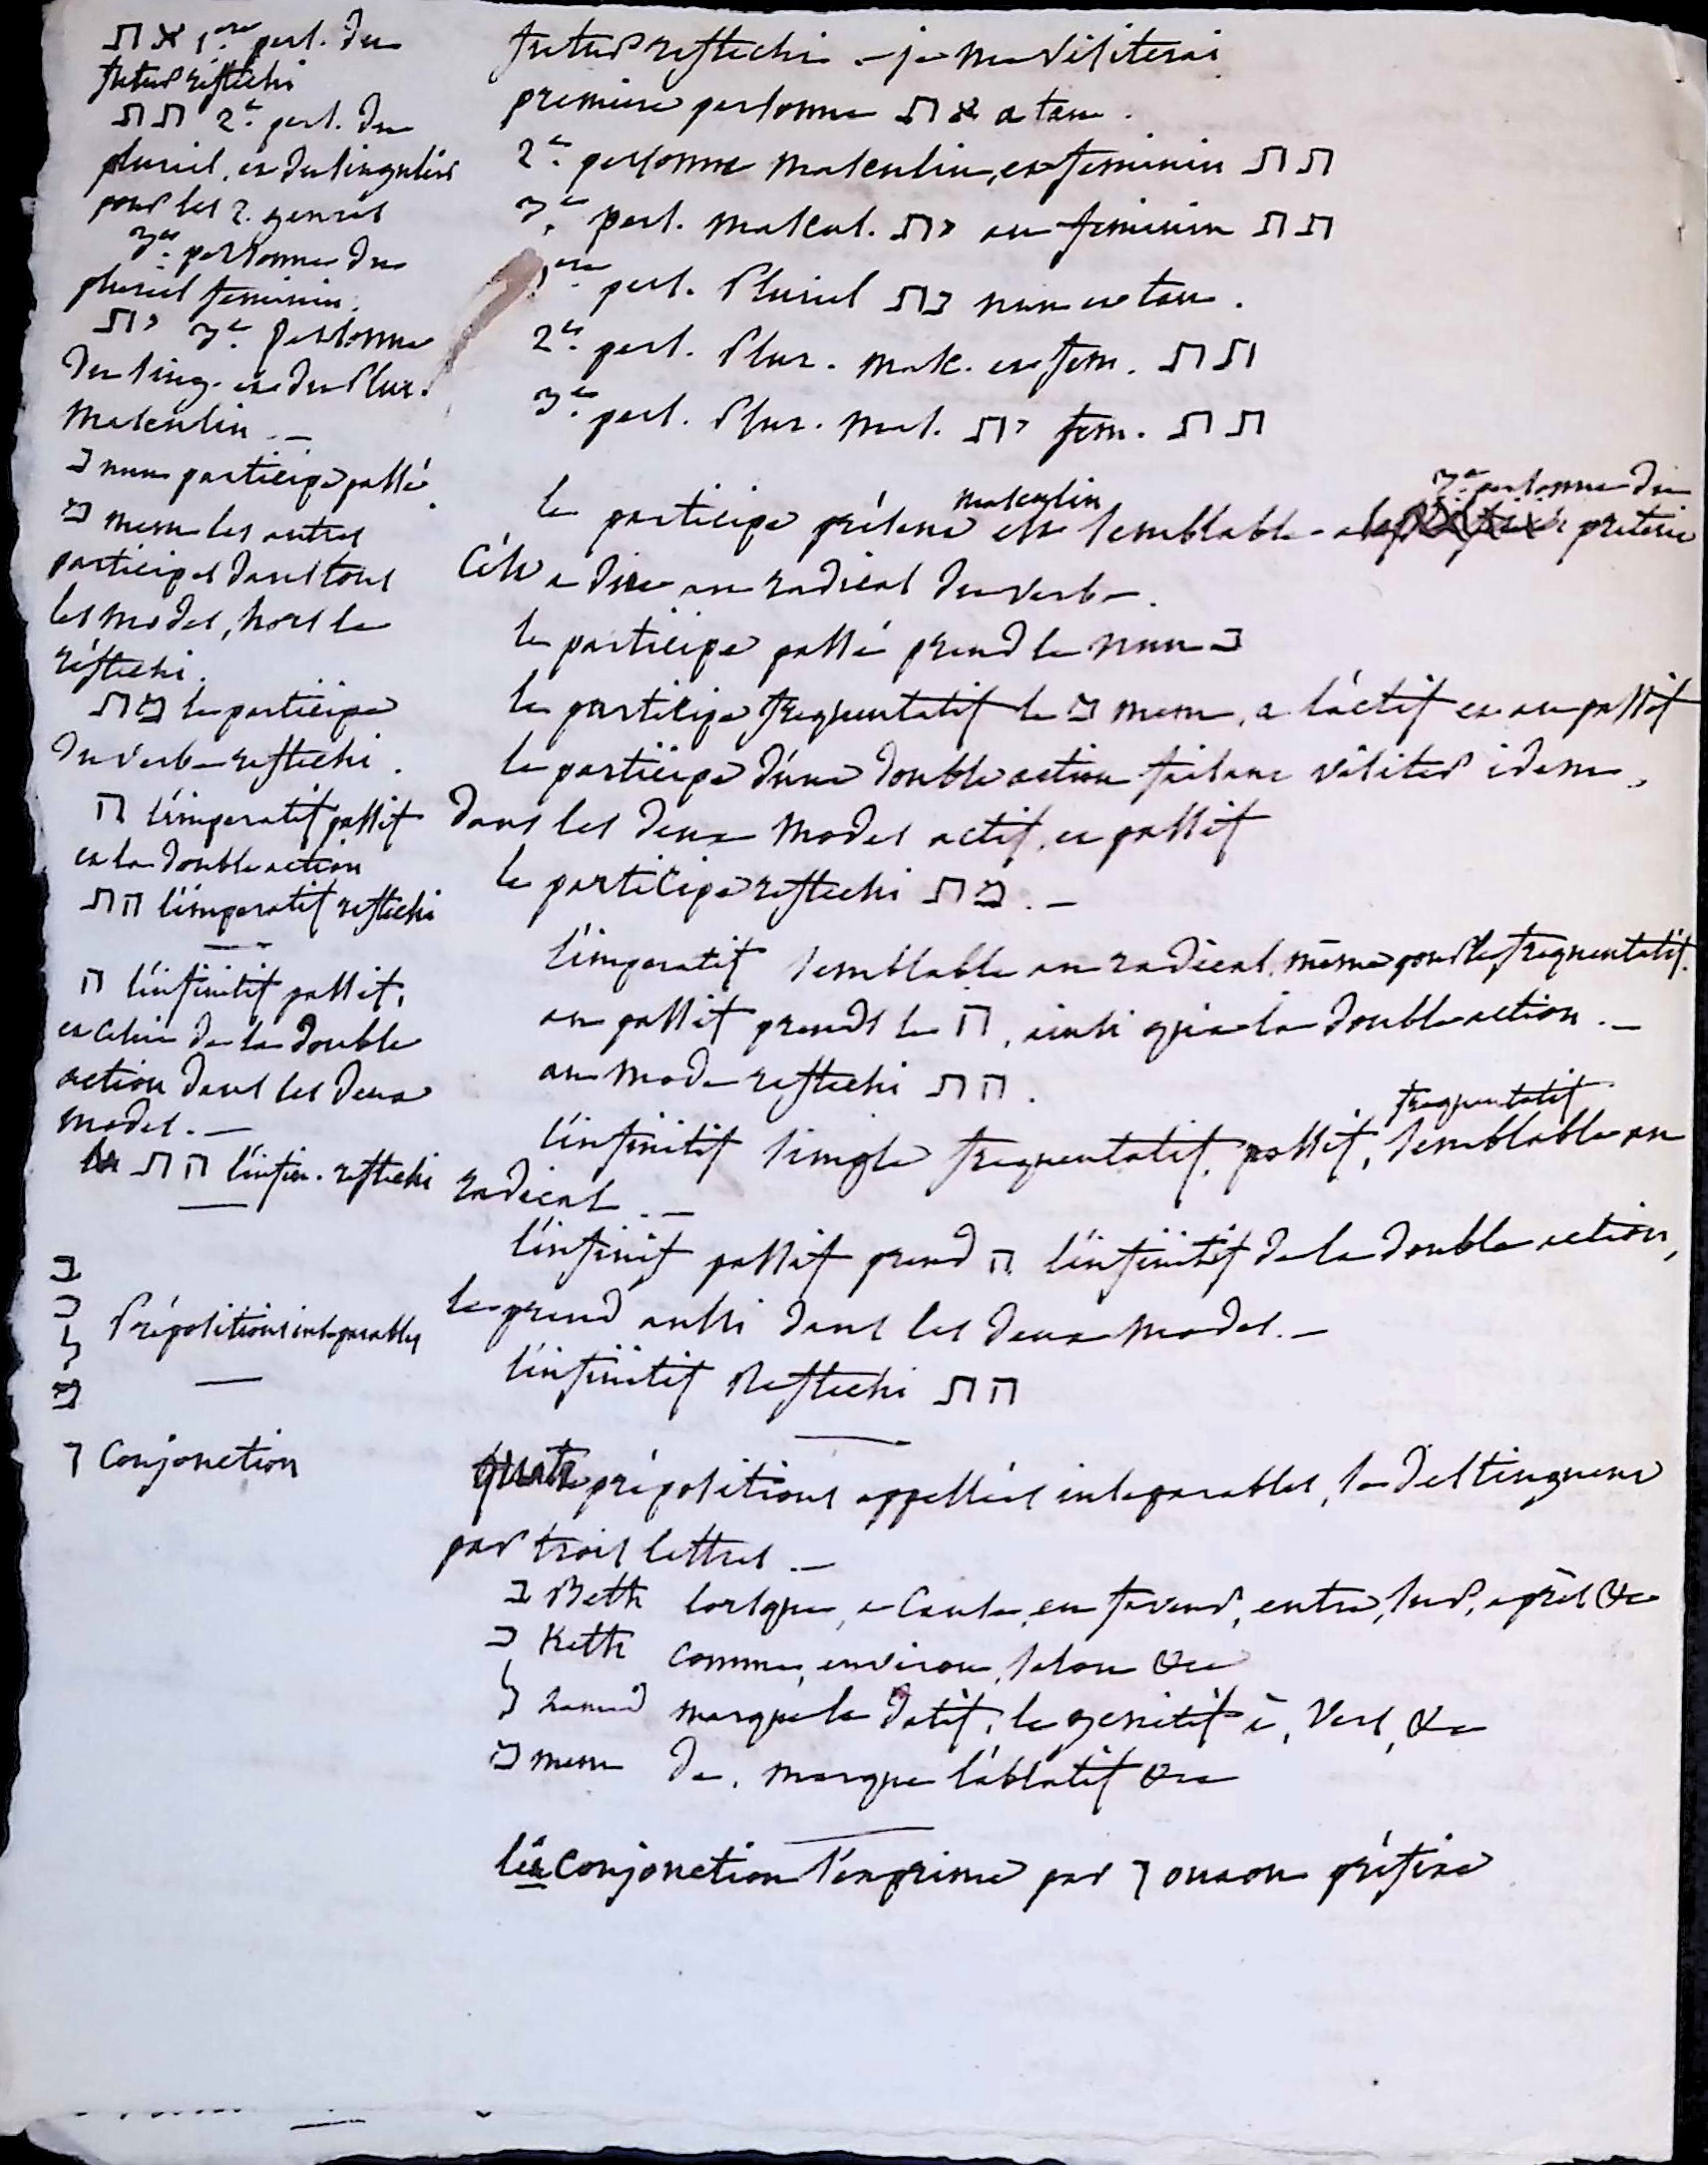 את 1.ere pers. du
futur réflechi
תת 2.e pers. du
pluriel, et du singulier
pour les 2. genres
3.e personne du
pluriel feminin.
ית 3.e personne
du sing. et du Plur.
Masculin. —
נ nun participe passé
מ mem les autres
participes dans tous
les modes, hors le
réflechi.
מת le participe
du verbe reflechi.
ה l'imperatif passif
et la double action
הת l'imperatif reflechi
ה l'infinitif passif,
et celui de la double
action dans les deux
modes. —
הת l'infin. reflechi
ב
כ
ל Prépositions inseparables
מ
ו Conjonction
futur reflechi - je me visiterai
premiere personne את a tau.
2.e personne masculin, et feminin תת
3.e pers. mascul. ית au feminin תת
1.ere pers. Pluriel נת nun et tau.
2.e pers. Plur. masc. et fem. תת
3.e pers. Plur. mas. ית fem. תת
le participe présent masculin est semblable a la 3.e personne du preterit
C'est a dire au radical du verbe.
le participe passé prend le nun נ
le participe frequentatif le מ mem, a l'actif et au passif
le participe d'une double action faisant visiter idem,
dans les deux modes actif, et passif
le participe reflechi מת. —
l'imperatif semblable au radical, même pour le frequentatif.
au passif prends le ה, ainsi qu'a la double action. —
au mode reflechi הת.
l'infinitif simple frequentatif, passif, frequentatif semblable au
radical. —
l'infinif passif prend ה l'infinitif de la double action,
le prend aussi dans les deux modes. —
l'infinitif Reflechi הת
quatre prépositions appellées inseparables, se destinguent
par trois lettres. —
ב Beth lorsque, a cause, en faveur, entre, sur, après &c
כ Keth comme, environ, selon &c
ל Lamed marque le datif, le genitif à, vers, &c
מ mem de, marque l'ablatif &c
la conjonction s'exprime par ו ouaou préfixe